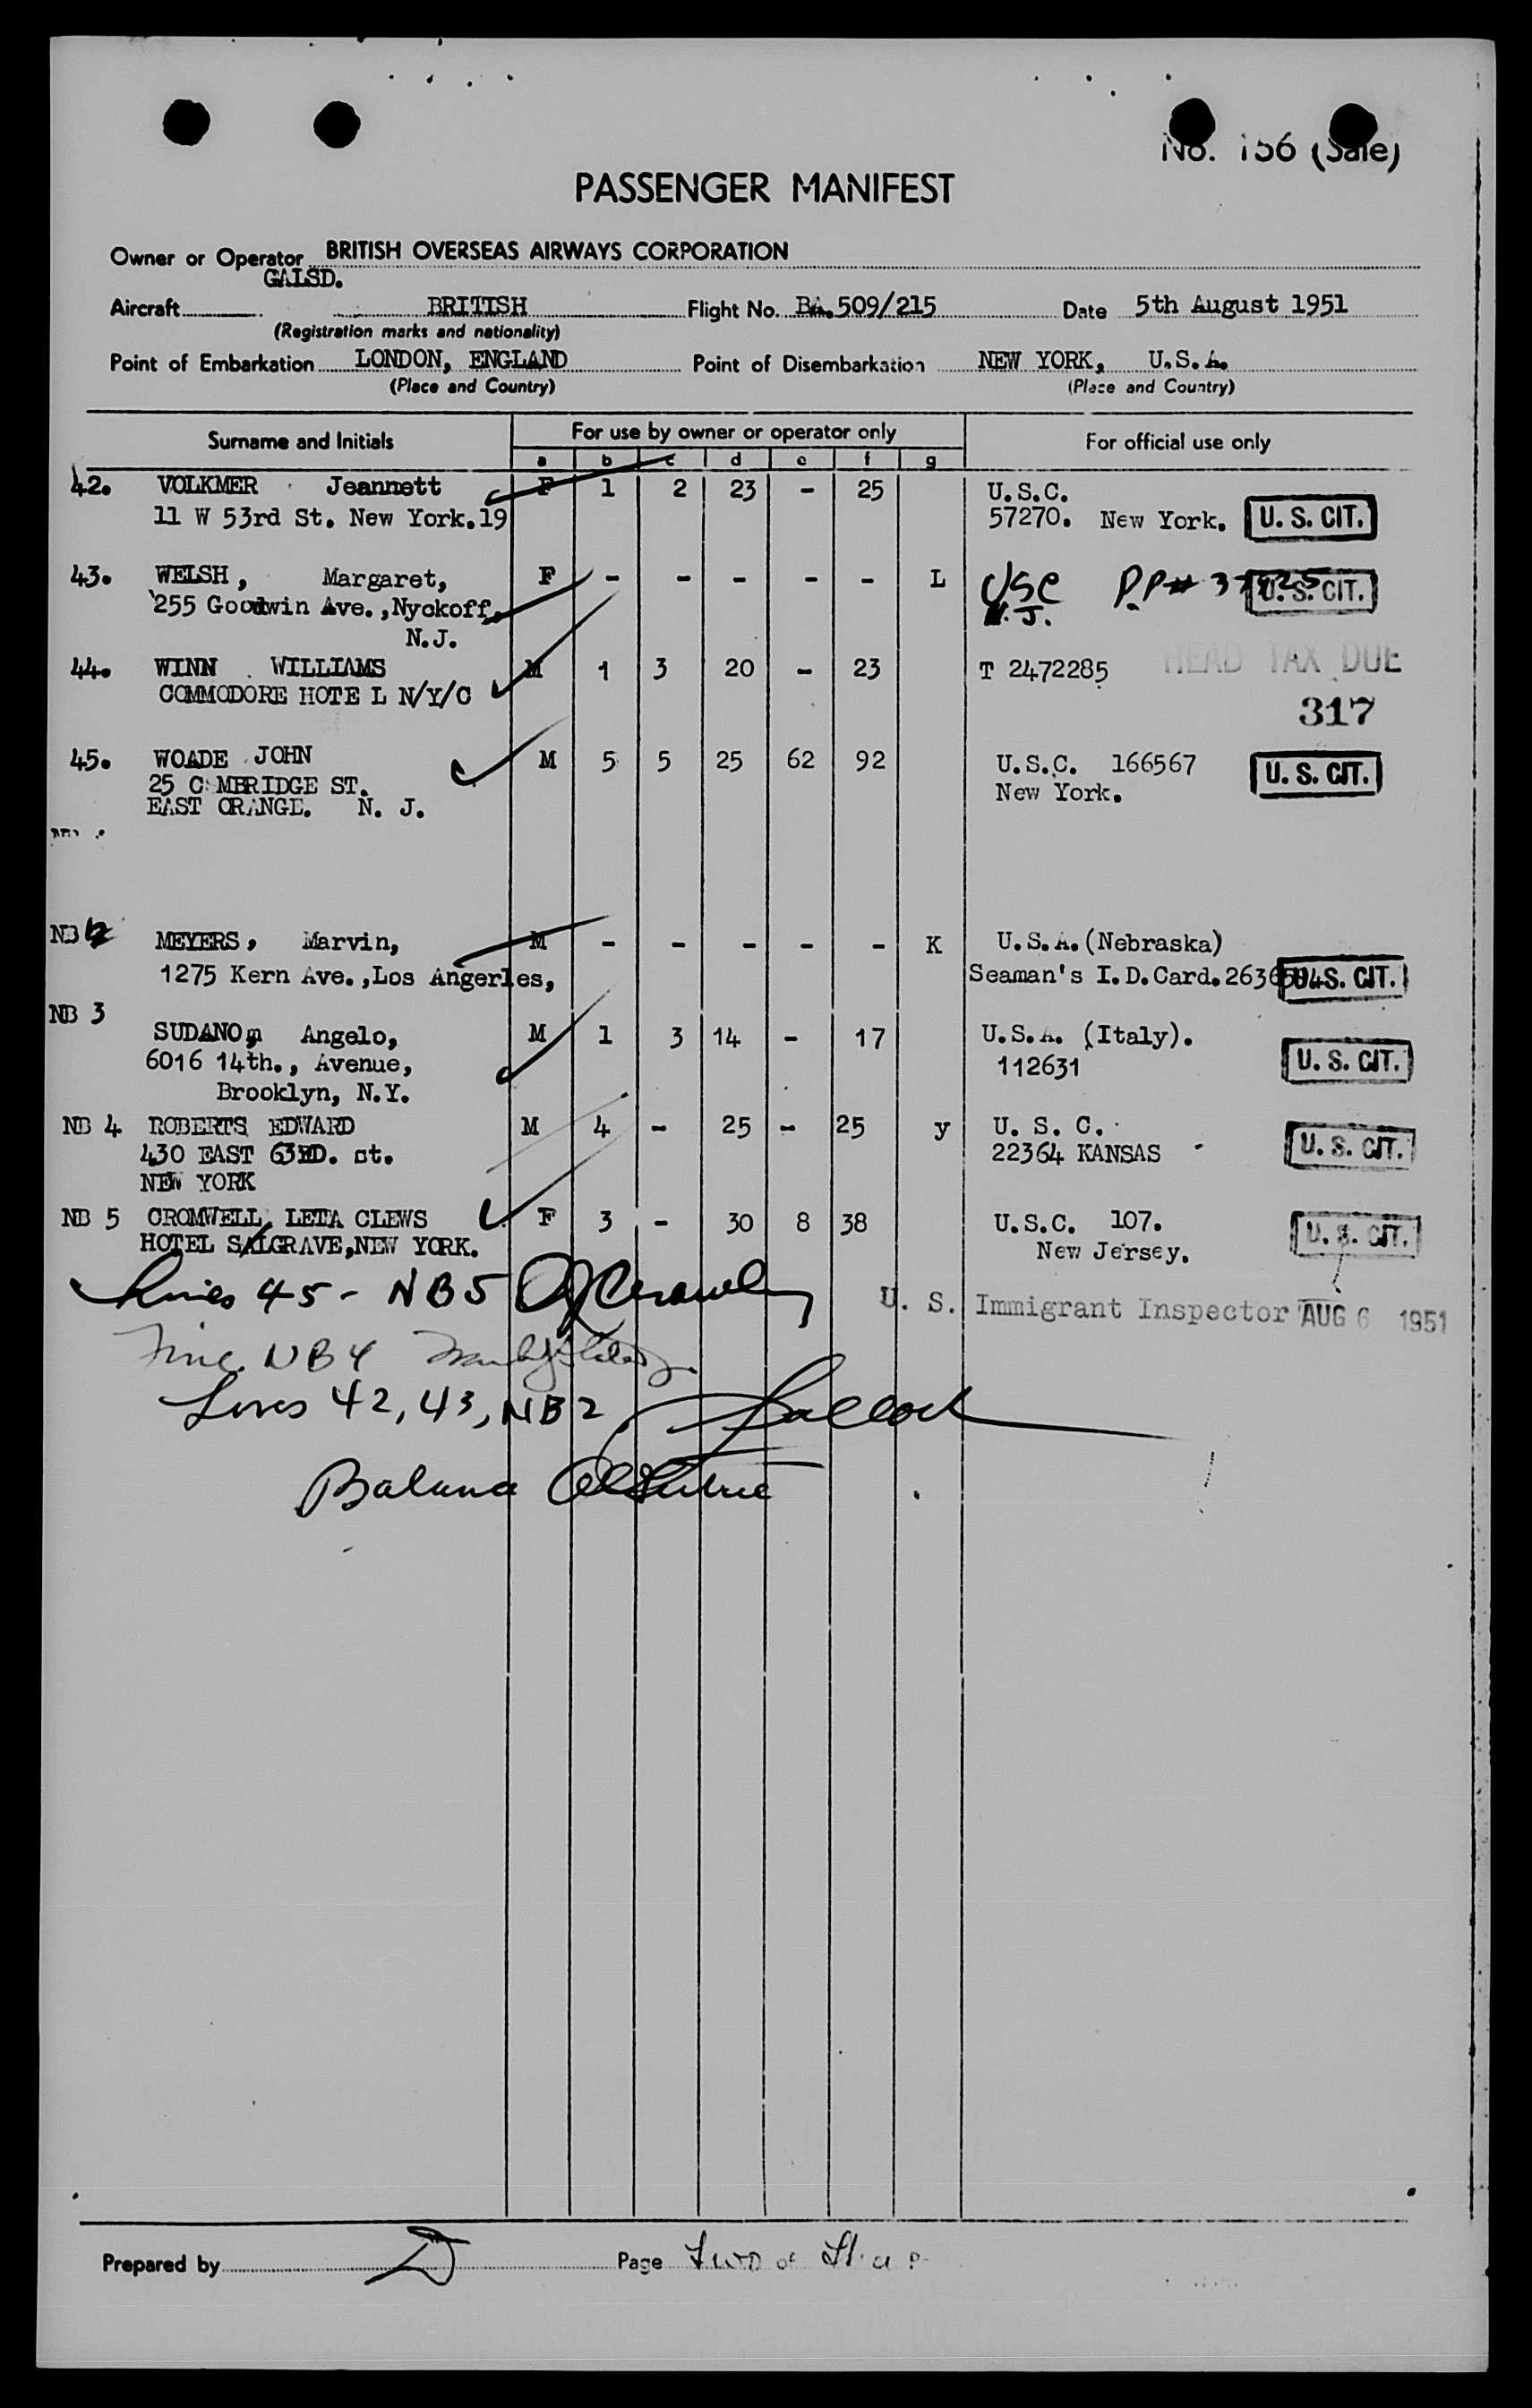 No. 156 (Sale)
PASSENGER MANIFEST
Owner or Operator BRITISH OVERSEAS AIRWAYS CORPORATION
GALSD.
Aircraft BRITISH Flight No. BA.509/215 Date 5th August 1951
(Registration marks and nationality)
Point of Embarkation LONDON, ENGLAND Point of Disembarkation NEW YORK, U.S.A.
(Place and Country) (Place and Country)
Surname and Initials For use by owner or operator only For official use only
a b c d e f g
42. VOLKMER Jeannett F 1 2 23 - 25 U.S.C.
11 W 53rd St. New York.19 57270. New York. U. S. CIT.
43. WELSH, Margaret, F - - - - - L USC P.P#
255 Goodwin Ave.,Nyckoff, N.J. U. S. CIT.
N.J.
44. WINN WILLIAMS M 1 3 20 - 23 T 2472285 HEAD TAX DUE
COMMODORE HOTE L N/Y/C 317
45. WOADE JOHN M 5 5 25 62 92 U.S.C. 166567 U. S. CIT.
25 C MBRIDGE ST. New York.
EAST ORANGE. N. J.
NB 2 MEYERS, Marvin, M - - - - - K U.S.A.(Nebraska)
1275 Kern Ave.,Los Angerles, Seaman's I.D.Card. U. S. CIT.
NB 3
SUDANO, Angelo, M 1 3 14 - 17 U.S.A. (Italy).
6016 14th., Avenue, 112631 U. S. CIT.
Brooklyn, N.Y.
NB 4 ROBERTS EDWARD M 4 - 25 - 25 y U. S. C.
430 EAST 63RD. st. 22364 KANSAS U. S. CIT.
NEW YORK
NB 5 CROMWELL LETA CLEWS F 3 - 30 8 38 U.S.C. 107.
HOTEL SALGRAVE,NEW YORK. New Jersey. U. S. CIT.
Lines 45 - NB5
U. S. Immigrant Inspector AUG 6 1951
Line NB4
Lines 42, 43, NB2
Balance
Prepared by Page Two of